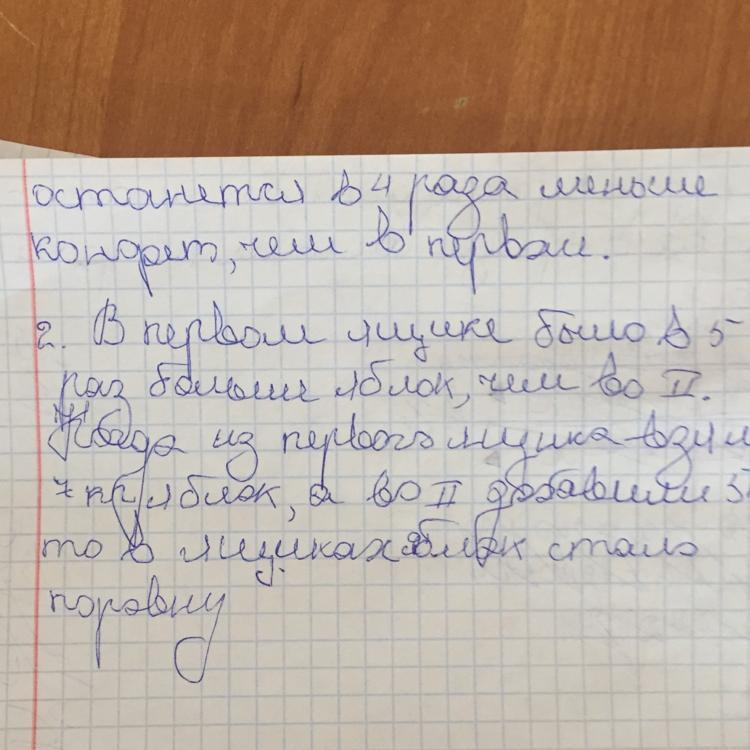 останется в 4 раза меньше
конфет, чем в первом.
2. В первом ящике было в 5
раз больше яблок, чем во II.
Когда из первого ящика взяли
7 кг яблок, а во II добавили 5
то в ящиках яблок стало
поровну